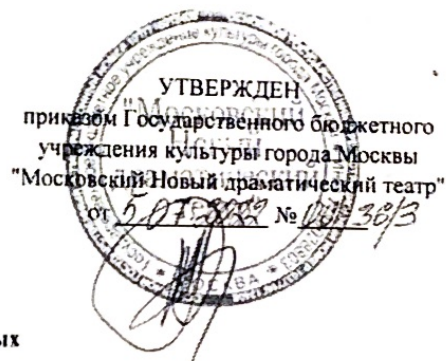 УТВЕРЖДЕН
приказом Государственного бюджетного
учреждения культуры города Москвы
"Московский Новый драматический театр"
от 5.07.2022 №
ых